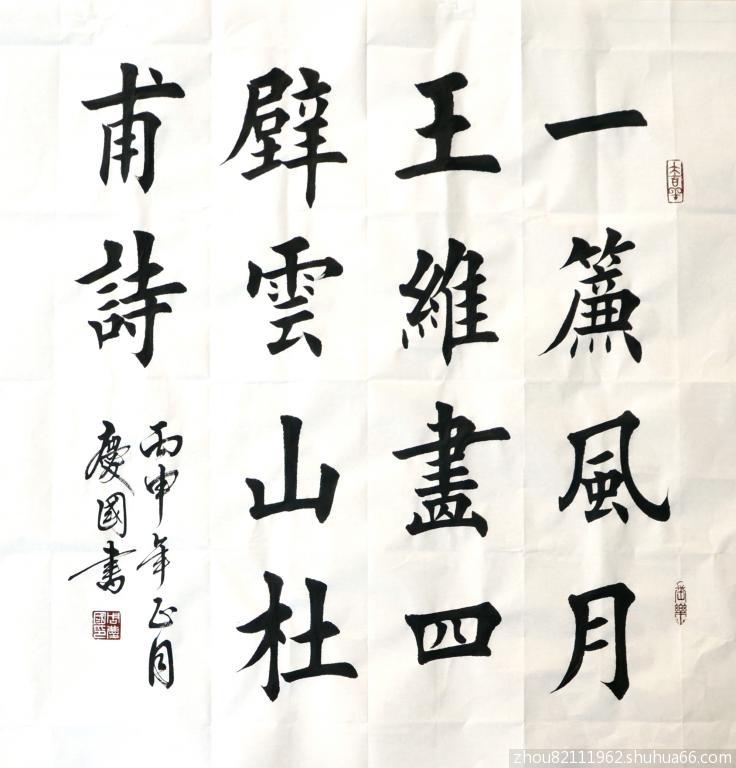 一簾風月
王維畫四
壁雲山杜
甫詩
丙申年正月
慶國書
zhou82111962.shuhua66.com